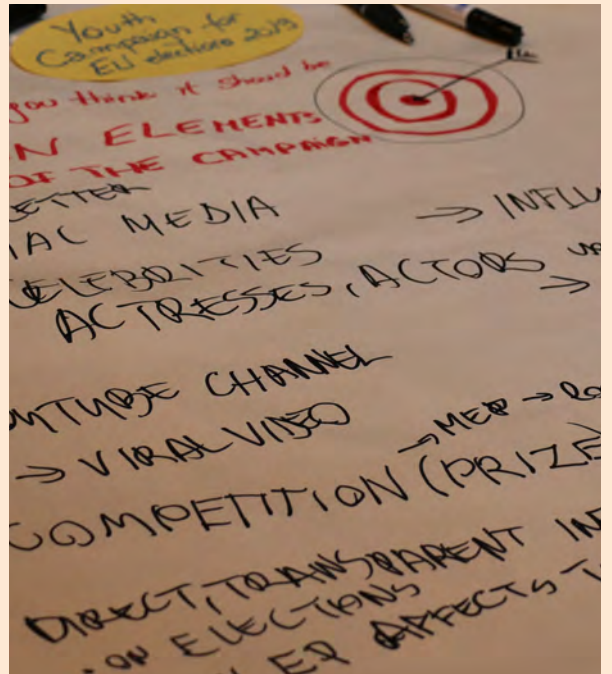 Youth
Campaign for
EU elections 2019
you think it should be
N ELEMENTS
OF THE CAMPAIGN
ETTER
IAL MEDIA → INFLU
CELEBRITIES
ACTRESSES, ACTORS
→
OUTUBE CHANNEL
→ VIRAL VIDEO → MEP →
COMPETITION (PRIZE)
DIRECT, TRANSPARENT IN
ON ELECTIONS
EP AFFECTS